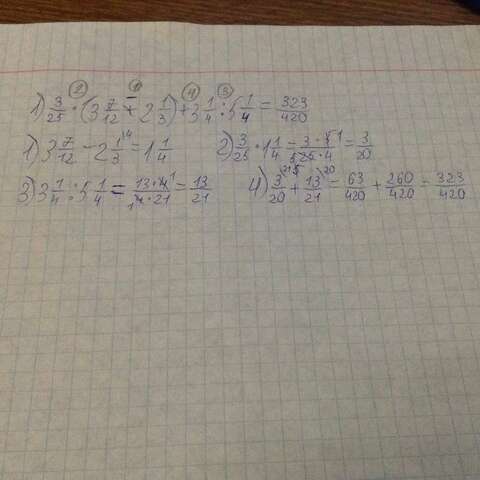 ② ① ④ ③
1) 3/25 · (3 7/12 - 2 1/3) + 3 1/4 : 5 1/4 = 323/420
1) 3 7/12 - 2 1/3 \4 = 1 1/4 2) 3/25 · 1 1/4 = 3 · 5 1/5 25 · 4 = 3/20
3) 3 1/4 : 5 1/4 = 13 · 4 1/1 4 · 21 = 13/21 4) 3/20 \21 + 13/21 \20 = 63/420 + 260/420 = 323/420